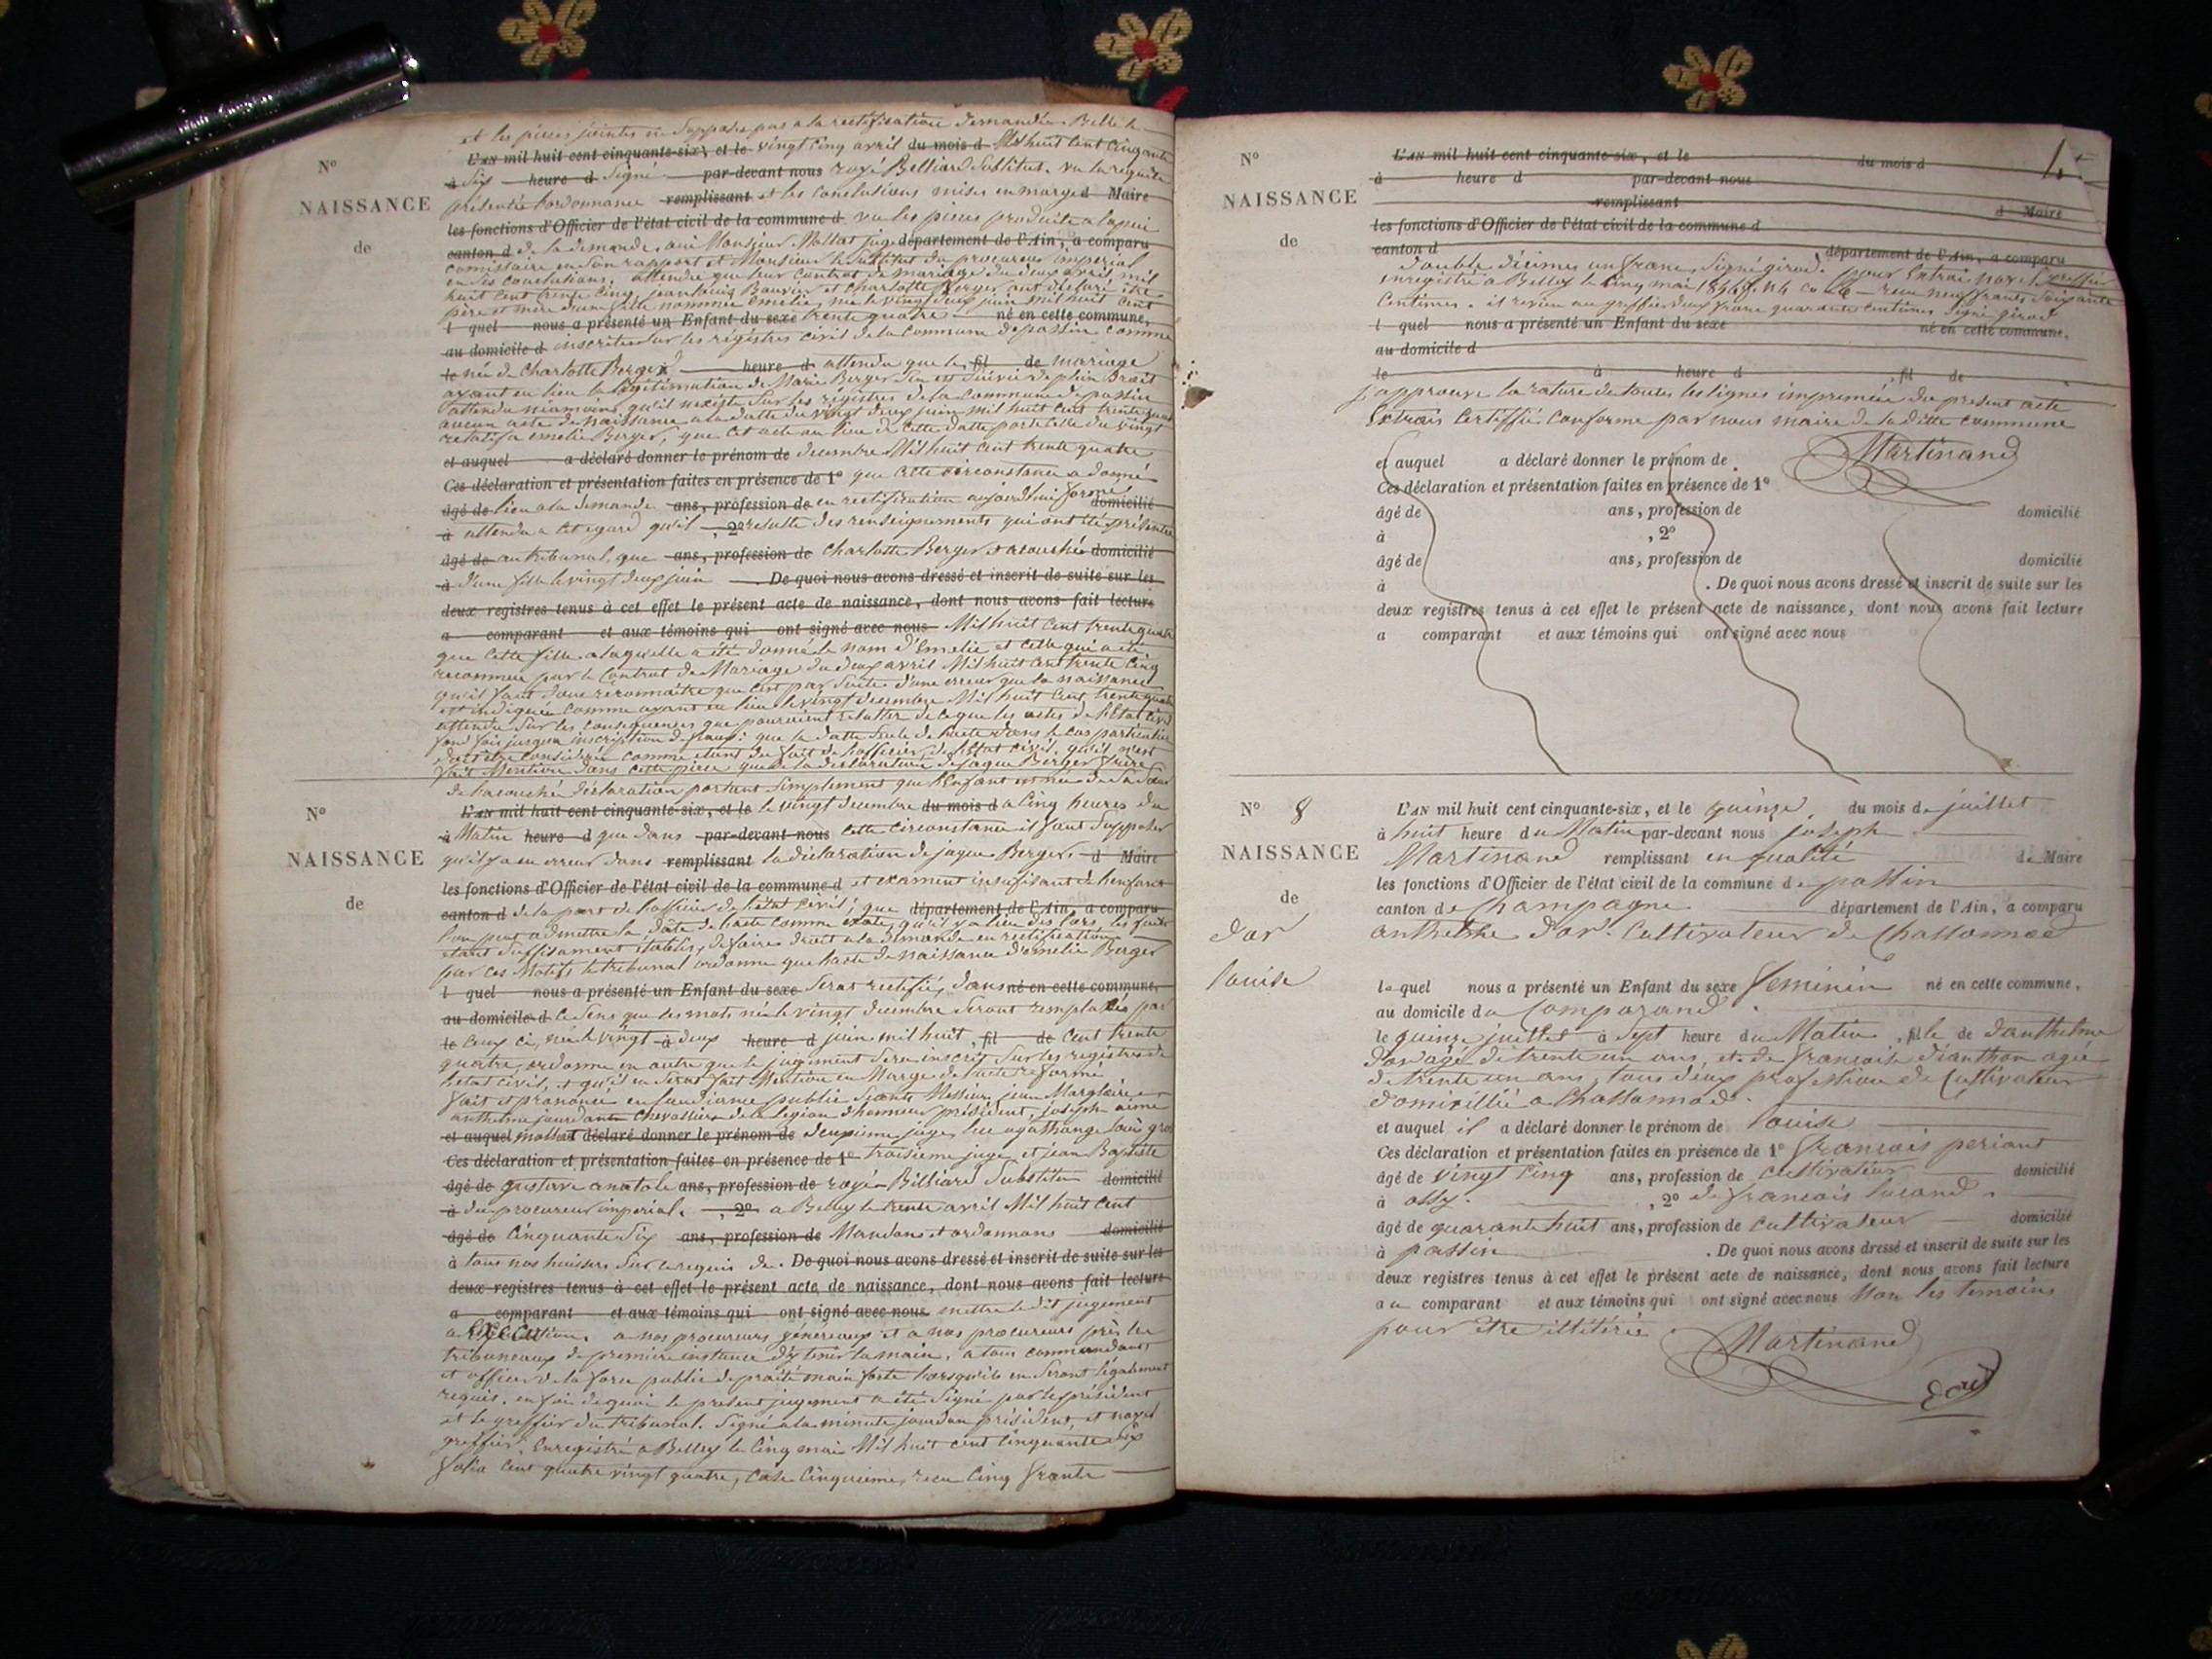 et les pièces jointes ne supposes pas a la rectification demandée. Belley le
L'AN mil huit cent cinquante-six, et le vingt cinq avril du mois d Mil huit cent cinquante
à Six heure d Signé par-devant nous rogé Belliard Substitut. vu la requete
présentée l'ordonnance remplissant et les Conclusions mises en marge d Maire
les fonctions d'Officier de l'état civil de la commune d vu les pieces produite a lapui
canton d de la demande. oui Monsieur Mollat juge département de l'Ain, a comparu
comissaire en son rapport et Monsieur le substitut du procureur imperial
en ses conclutions. attendu que leur contrat de mariage du deux avril mil
huit cent trente cinq, jean louis Bouvier et Charlotte Berger ont declaré être
père et mère d'une fille nommée emelie, née le vingt deux juin mil huit cent
l quel nous a présenté un Enfant du sexe trente quatre né en cette commune,
au domicile d inscrite sur les régistres civil de la commune de passin comme
le née de Charlotte Berger heure d attendu que le fil de mariage
ayant eu lieu la légitimation de Marie Berger s'en est suivie de plein Droit
attendu néamoins qu'il n'existe sur les régistres de la commune de passin
aucun acte de naissance a la datte du vingt deux juin mil huit cent trente quatre
relatif a emelie Berger, que cet acte au lieu de cette datte porte celle du vingt
et auquel a déclaré donner le prénom de decembre Mil huit cent trente quatre
Ces déclaration et présentation faites en présence de 1° que cette circonstance a donné
âgé de lieu a la demande ans, profession de en rectification aujourd'hui formé domicilié
à attendu a cet egard qu'il , 2° resulte des renseignements qui ont été présentés
âgé de au tribunal, que ans, profession de Charlotte Berger est acouchée domicilié
à d'une fille le vingt deux juin . De quoi nous avons dressé et inscrit de suite sur les
deux registres tenus à cet effet le présent acte de naissance, dont nous avons fait lecture
a comparant et aux témoins qui ont signé avec nous Mil huit cent trente quatre
que cette fille a laquelle a été donné le nom d'Emelie et celle qui a été
reconnue par le Contrat de Mariage du deux avril Mil huit cent trente cinq
qu'il faut donc réconnaitre que c'est par suite d'une erreur que sa naissance
est indiquée comme ayant eu lieu le vingt decembre Mil huit cent trente quatre
attendu sur les consequences que pouraient resulter de ce que les actes de l'Etat civil
font fois jusqua inscription de faux: que la datte seule de l'acte dans le cas particulier
doit être considérée comme étant du fait de l'officier de l'Etat civil, qu'il n'est
fait Mention dans cette pièce que de la déclaration de jaque Berger frère
de l'acouchée déclaration portant simplement que l'Enfant est née de sa Sœur
N°
NAISSANCE
de
L'AN mil huit cent cinquante-six, et le le vingt decembre du mois d a Cinq heures du
à Matin heure d que dans par-devant nous cette circonstance il faut supposer
qu'il y a eu erreur dans remplissant la déclaration de jaque Berger d Maire
les fonctions d'Officier de l'état civil de la commune d et examen insufisant de l'enfant
canton d de la part de l'officier de l'état civil; que département de l'Ain, a comparu
l'on peut admettre la date de l'acte comme exate, qu'il y a lieu des lors les faits
étant suffisament établis, de faire droit a la demande en rectification
par ces Motifs le tribunal ordonne que l'acte de naissance d'emelie Berger
l quel nous a présenté un Enfant du sexe Sera rectifié, dans né en cette commune,
au domicile d le sens que les mots née le vingt decembre seront remplacés par
le ceux ci, née le vingt à deux heure d juin mil huit , fil de cent trente
quatre, ordonne en outre que le jugement sera inscrit sur les registres de
l'etat civil, et qu'il en serat fait Mention en Marge de l'acte reformé
fait et prononcé en l'audiance public
anthelme jourdan Chevallier de la legion d'honneur président, joseph aimé
et auquel mollat déclaré donner le prénom de deuxieme juge
Ces déclaration et présentation faites en présence de 1° troisieme juge et jean Baptiste
âgé de gustave anatole ans, profession de rogé Billiard Substitu domicilié
à du procureur imperial. , 2° a Belley le trente avril Mil huit cent
âgé de Cinquante Six ans, profession de Mandons et ordonnons domicilié
à tous nos huissiers sur ce requis de . De quoi nous avons dressé et inscrit de suite sur les
deux registres tenus à cet effet le présent acte de naissance, dont nous avons fait lecture
a comparant et aux témoins qui ont signé avec nous mettre le dit jugement
a Execution. a nos procureurs généreaux et a nos procureurs près les
tribuneaux de premiere instance d'y tenir la main, a tous commandant
et officier de la force public de praité main forte lorsqu'ils en seront légalement
requis. en foi de quoi le present jugement a été signé par le président
et le greffier du tribunal. Signé a la minute jourdan président, et noyel
greffier. Enregistré a Belley le Cinq mai Mil huit cent cinquante six
folio cent quatre vingt quatre, Case Cinquieme, recu Cinq francs
N°
NAISSANCE
de
L'AN mil huit cent cinquante-six, et le du mois d
à heure d par-devant nous
remplissant d Maire
les fonctions d'Officier de l'état civil de la commune d
canton d département de l'Ain, a comparu
double décimes un franc, Signé girod. pour Extrai noyel greffier
enregistré a Belley le Cinq mai recu neuf francs Soixante
Centimes. il revien au greffier deux franc quarante centimes Signé girod
l quel nous a présenté un Enfant du sexe né en cette commune,
au domicile d
le à heure d , fil de
j'approuve la rature de toutes les lignes imprimées du présent acte
Extrais Certiffié Conforme par nous maire de la ditte commune
Martinand
et auquel a déclaré donner le prénom de .
Ces déclaration et présentation faites en présence de 1°
âgé de ans, profession de domicilié
à , 2°
âgé de ans, profession de domicilié
à . De quoi nous avons dressé et inscrit de suite sur les
deux registres tenus à cet effet le présent acte de naissance, dont nous avons fait lecture
a comparant et aux témoins qui ont signé avec nous
N° 8
NAISSANCE
de
d'or
louise
L'AN mil huit cent cinquante-six, et le quinze du mois de juillet
à huit heure du Matin par-devant nous joseph
Martinand remplissant en qualité de Maire
les fonctions d'Officier de l'état civil de la commune de passin
canton de Champagne département de l'Ain, a comparu
anthelme d'or. Cultivateur de Chassonnod
lequel nous a présenté un Enfant du sexe feminin né en cette commune,
au domicile du Comparand
le quinze juillet à sept heure du Matin , fille de d'anthelme
d'or agé de trente un ans, et de françoise dianthon agée
de trente un ans, tous deux profession de Cultivateur
domicillié a Chassonnod.
et auquel il a déclaré donner le prénom de louise
Ces déclaration et présentation faites en présence de 1° françois periant
âgé de vingt Cinq ans, profession de Cultivateur domicilié
à ossy. , 2° de françois lucand.
âgé de quarante huit ans, profession de Cultivateur domicilié
à passin . De quoi nous avons dressé et inscrit de suite sur les
deux registres tenus à cet effet le présent acte de naissance, dont nous avons fait lecture
au comparant et aux témoins qui ont signé avec nous Non les temoins
pour être illitéré
Martinand
dor